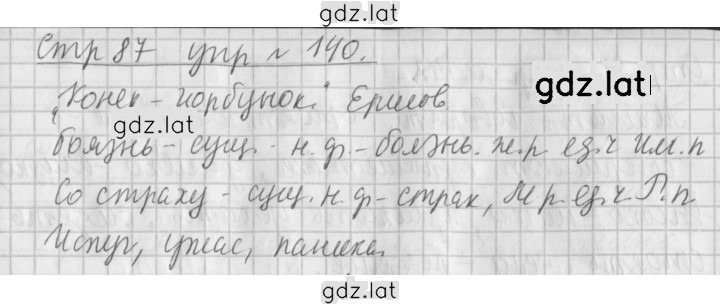 gdz.lat
Стр 87 упр № 140.
"Конек-горбунок" Ершов
gdz.lat
gdz.lat
Боязнь - сущ. - н.ф. - боязнь. ж.р ед.ч Им.п
Со страху - сущ. н.ф - страх, М р. ед.ч. Р.п
Испуг, ужас, паника.
gdz.lat